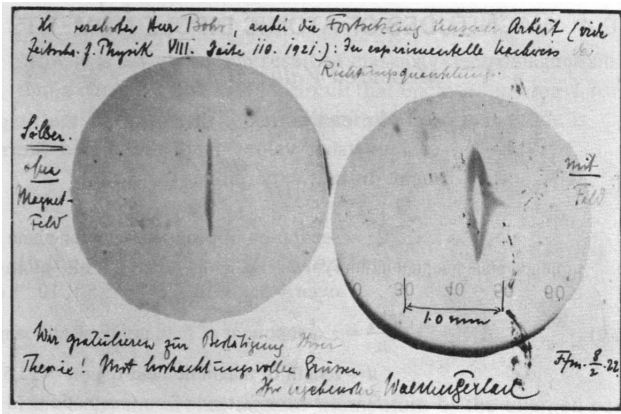 verehrter Herr Bohr, anbei die Fortsetzung unserer Arbeit (vide
Zeitschr. f. Physik VIII. Seite 110. 1921.): Der experimentelle Nachweis
Richtungsquantelung.
Silber.
ohne
Magnet-
Feld
mit
Feld
0 30 40 50 60
1.0 mm
Wir gratulieren zur Bestätigung Ihrer
Theorie! Mit hochachtungsvollen Grüssen
Ihr ergebenster Walther Gerlach
Ffm. 8/2.22.